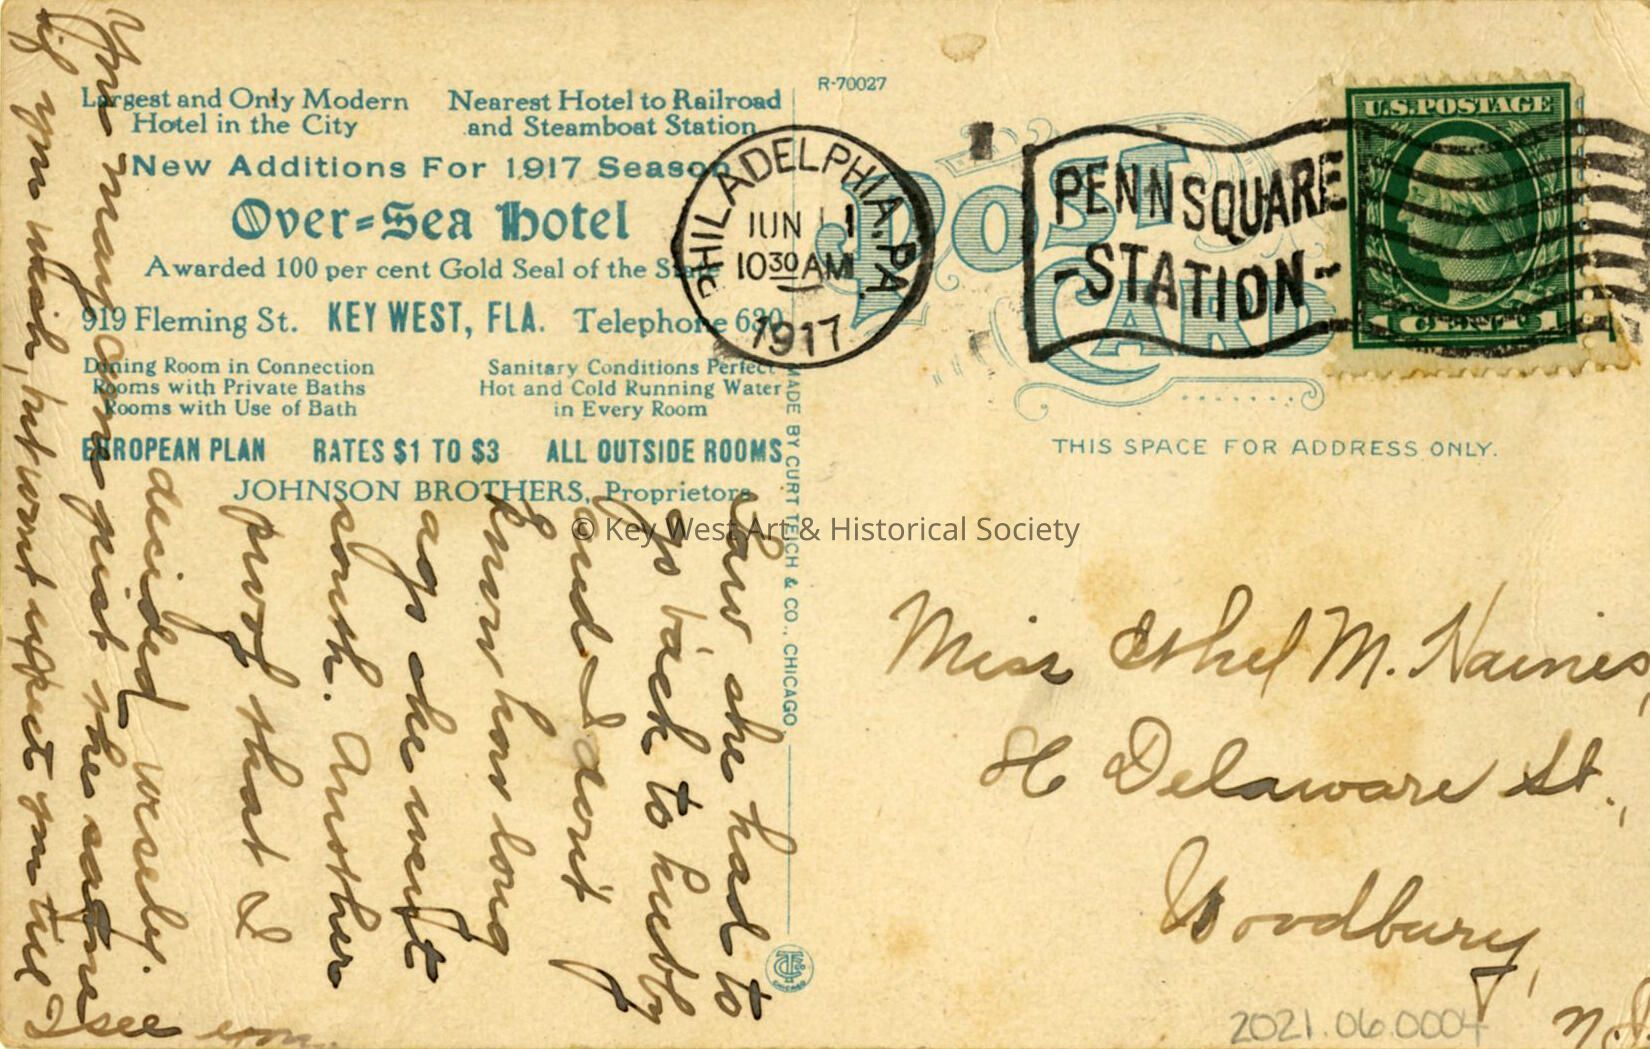 Largest and Only Modern
Hotel in the City
Nearest Hotel to Railroad
and Steamboat Station
New Additions For 1917 Season
Over=Sea Hotel
Awarded 100 per cent Gold Seal of the State
919 Fleming St. KEY WEST, FLA. Telephone 630
Dining Room in Connection
Rooms with Private Baths
Rooms with Use of Bath
Sanitary Conditions Perfect
Hot and Cold Running Water
in Every Room
EUROPEAN PLAN RATES $1 TO $3 ALL OUTSIDE ROOMS
JOHNSON BROTHERS, Proprietors
Saw she had to
go back to hubby
and I don't
know how long
ago she went
south. Another
proof that I
decided wisely.
You may come just the same
if you wish, but wont expect you till
I see you.
R-70027
POST CARD
PHILADELPHIA, PA.
JUN 11
10 30 AM
1917
PENN SQUARE
-STATION-
U.S. POSTAGE
1 CENT 1
THIS SPACE FOR ADDRESS ONLY.
MADE BY CURT TEICH & CO., CHICAGO
© Key West Art & Historical Society
Miss Ethel M. Haines,
Delaware St.,
Woodbury,
N.J.
2021.06.0004